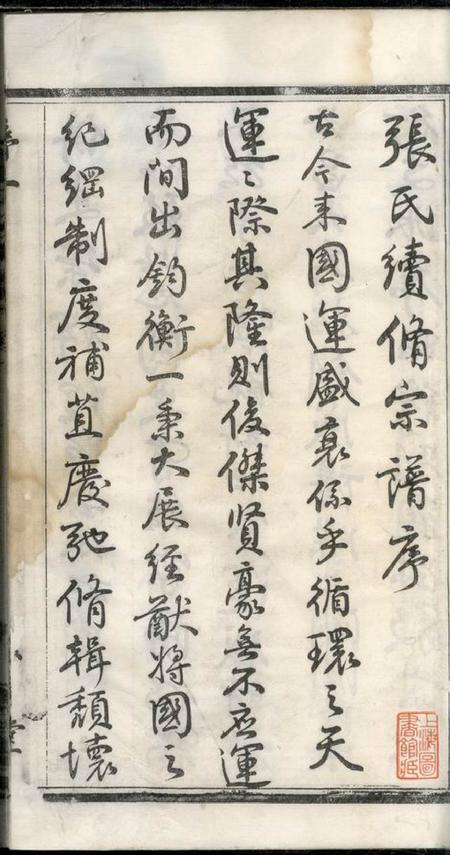 張氏續脩宗譜序
古今来國運盛衰係乎循環之天
運〻際其隆則俊傑贤豪無不應運
而間出鈞衡一秉大展经猷將國之
纪綱制度補苴廢弛脩輯頽壊
上海圖書館藏